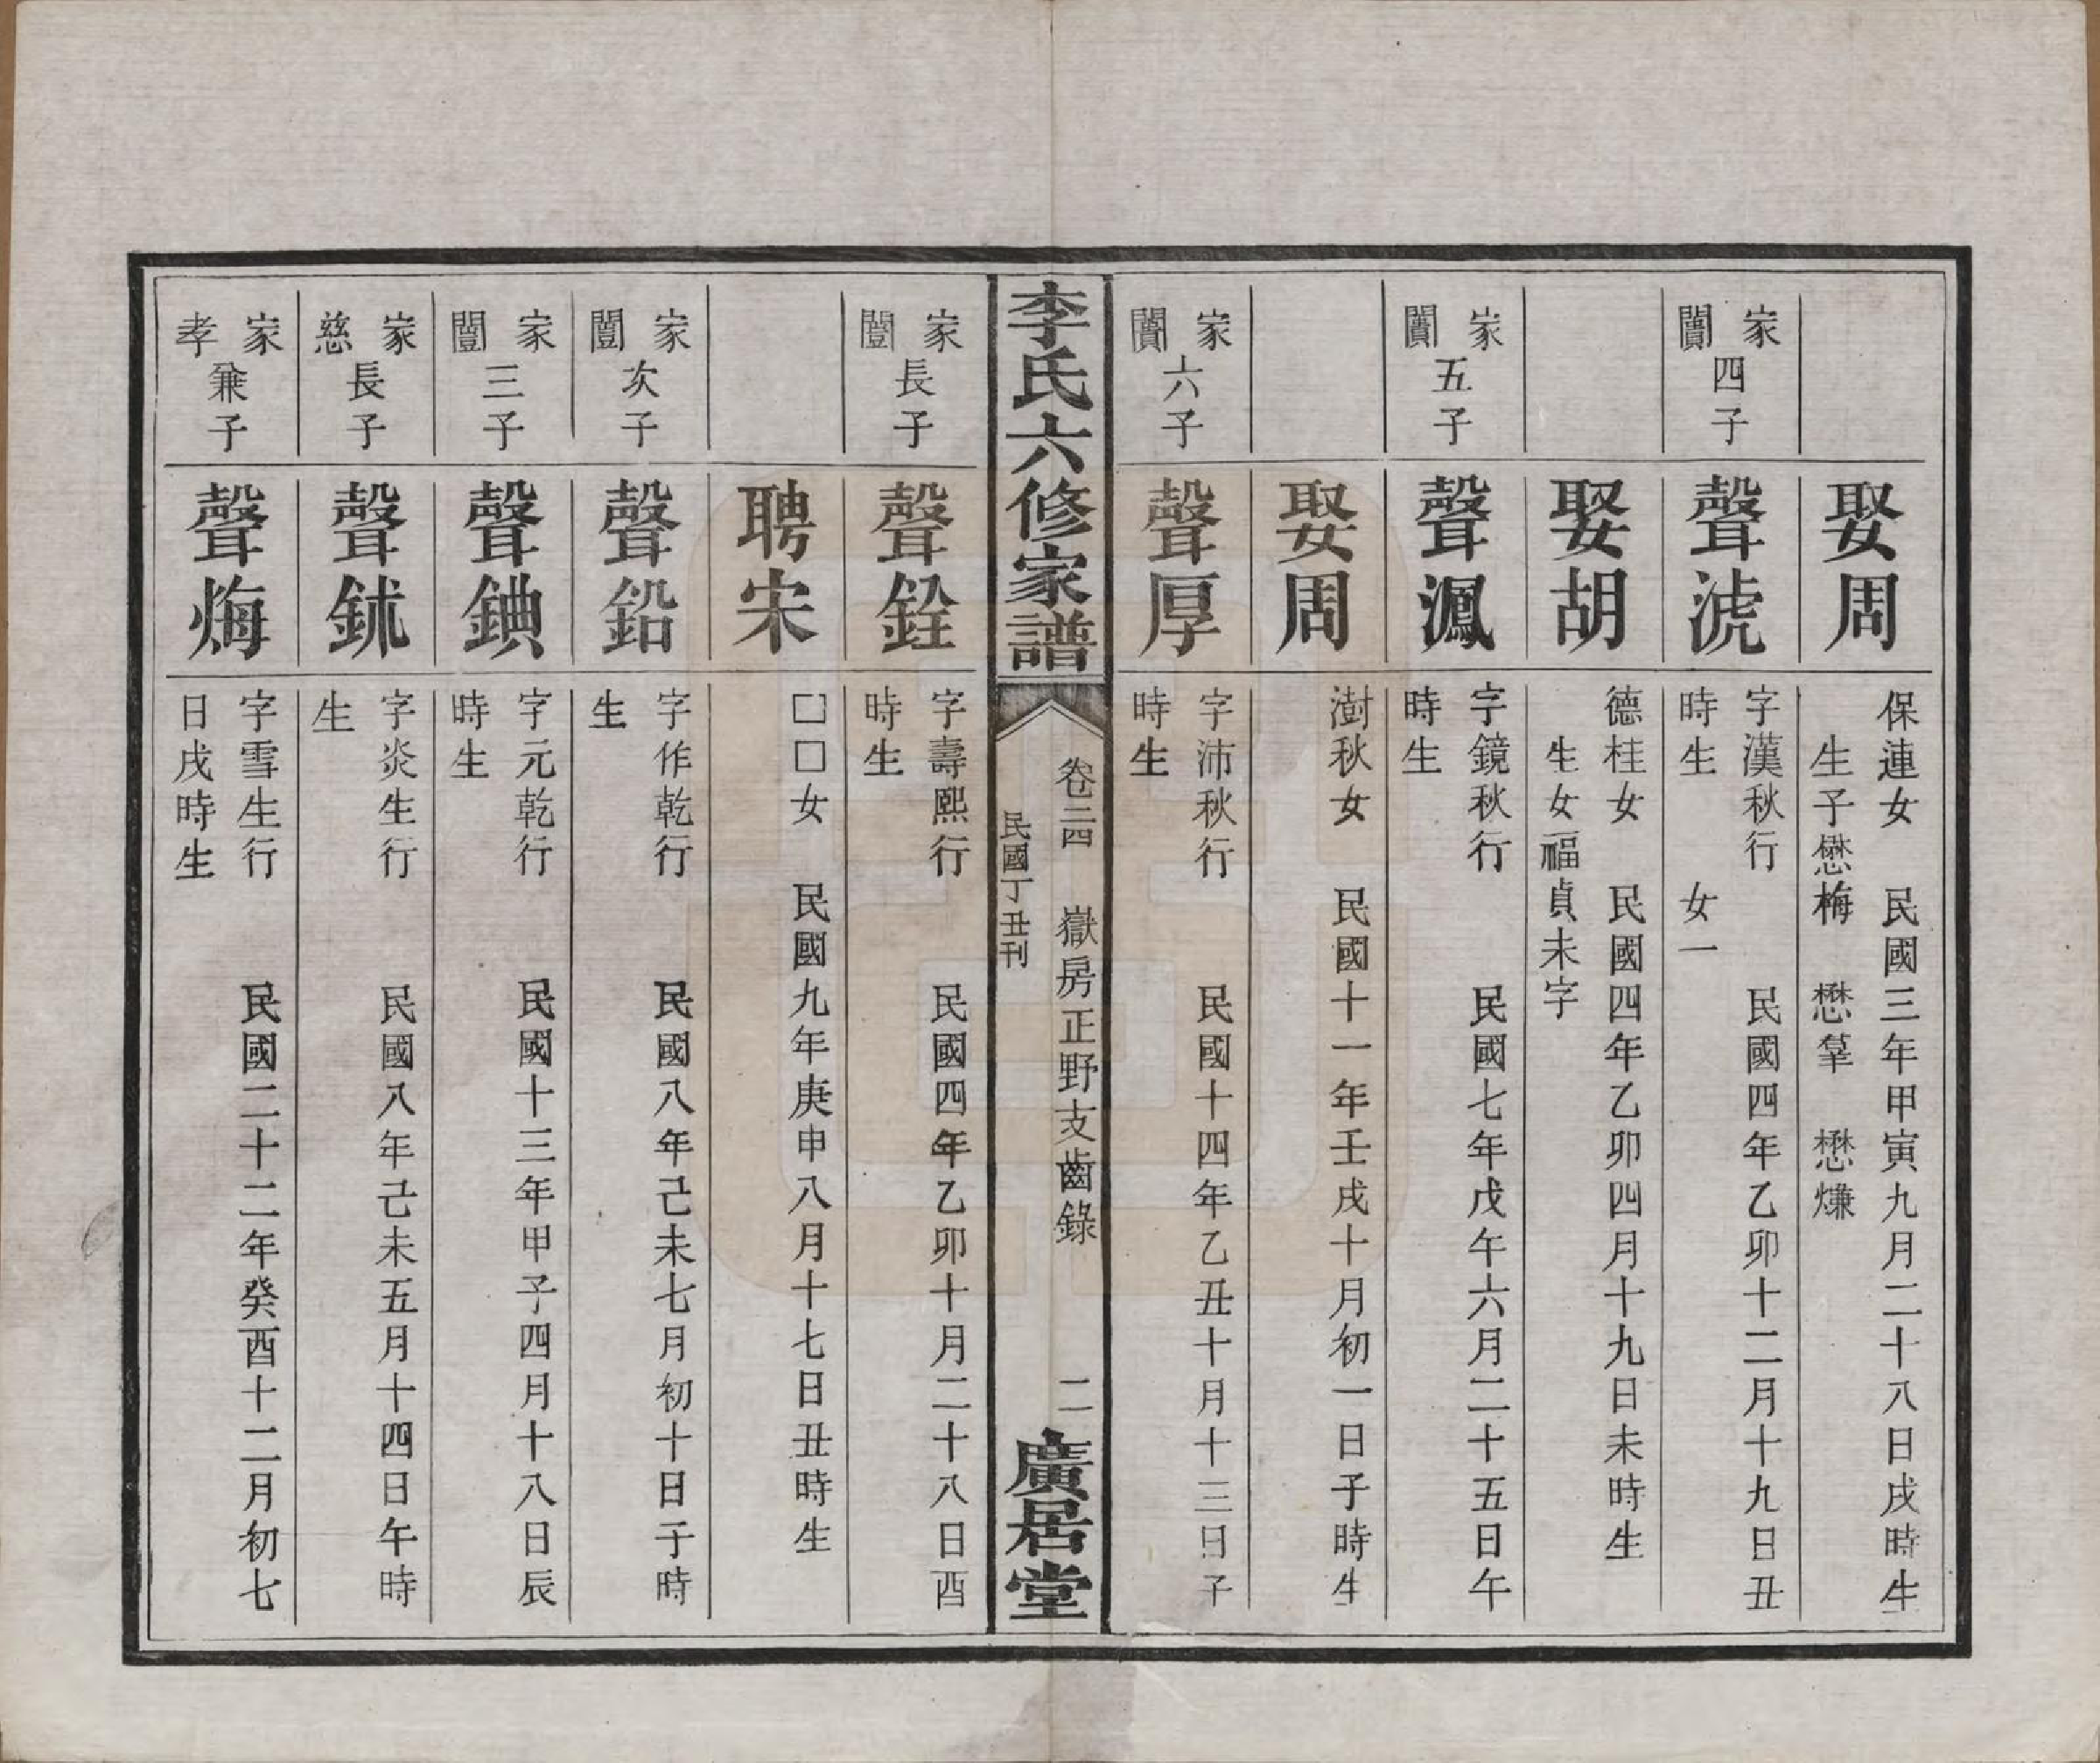 娶周
保連女　民國三年甲寅九月二十八日戌時生
生子懋梅　懋𦎟　懋㷰
家𨷲四子
聲淲
字漢秋行　民國四年乙卯十二月十九日丑
時生　女一
娶胡
德桂女　民國四年乙卯四月十九日未時生
生女福貞未字
家𨷲五子
聲㶡
字鏡秋行　民國七年戊午六月二十五日午
時生
娶周
澍秋女　民國十一年壬戌十月初一日子時生
家𨷲六子
聲厚
字沛秋行　民國十四年乙丑十月十三日子
時生
李氏六修家譜
卷三四　嶽房正野支齒錄　二
民國丁丑刊
廣居堂
家闓長子
聲銓
字壽熙行　民國四年乙卯十月二十八日酉
時生
聘宋
□□女　民國九年庚申八月十七日丑時生
家闓次子
聲鉛
字作乾行　民國八年己未七月初十日子時
生
家闓三子
聲錪
字元乾行　民國十三年甲子四月十八日辰
時生
家慈長子
聲鉥
字炎生行　民國八年己未五月十四日午時
生
家孝兼子
聲㷃
字雪生行　民國二十二年癸酉十二月初七
日戌時生